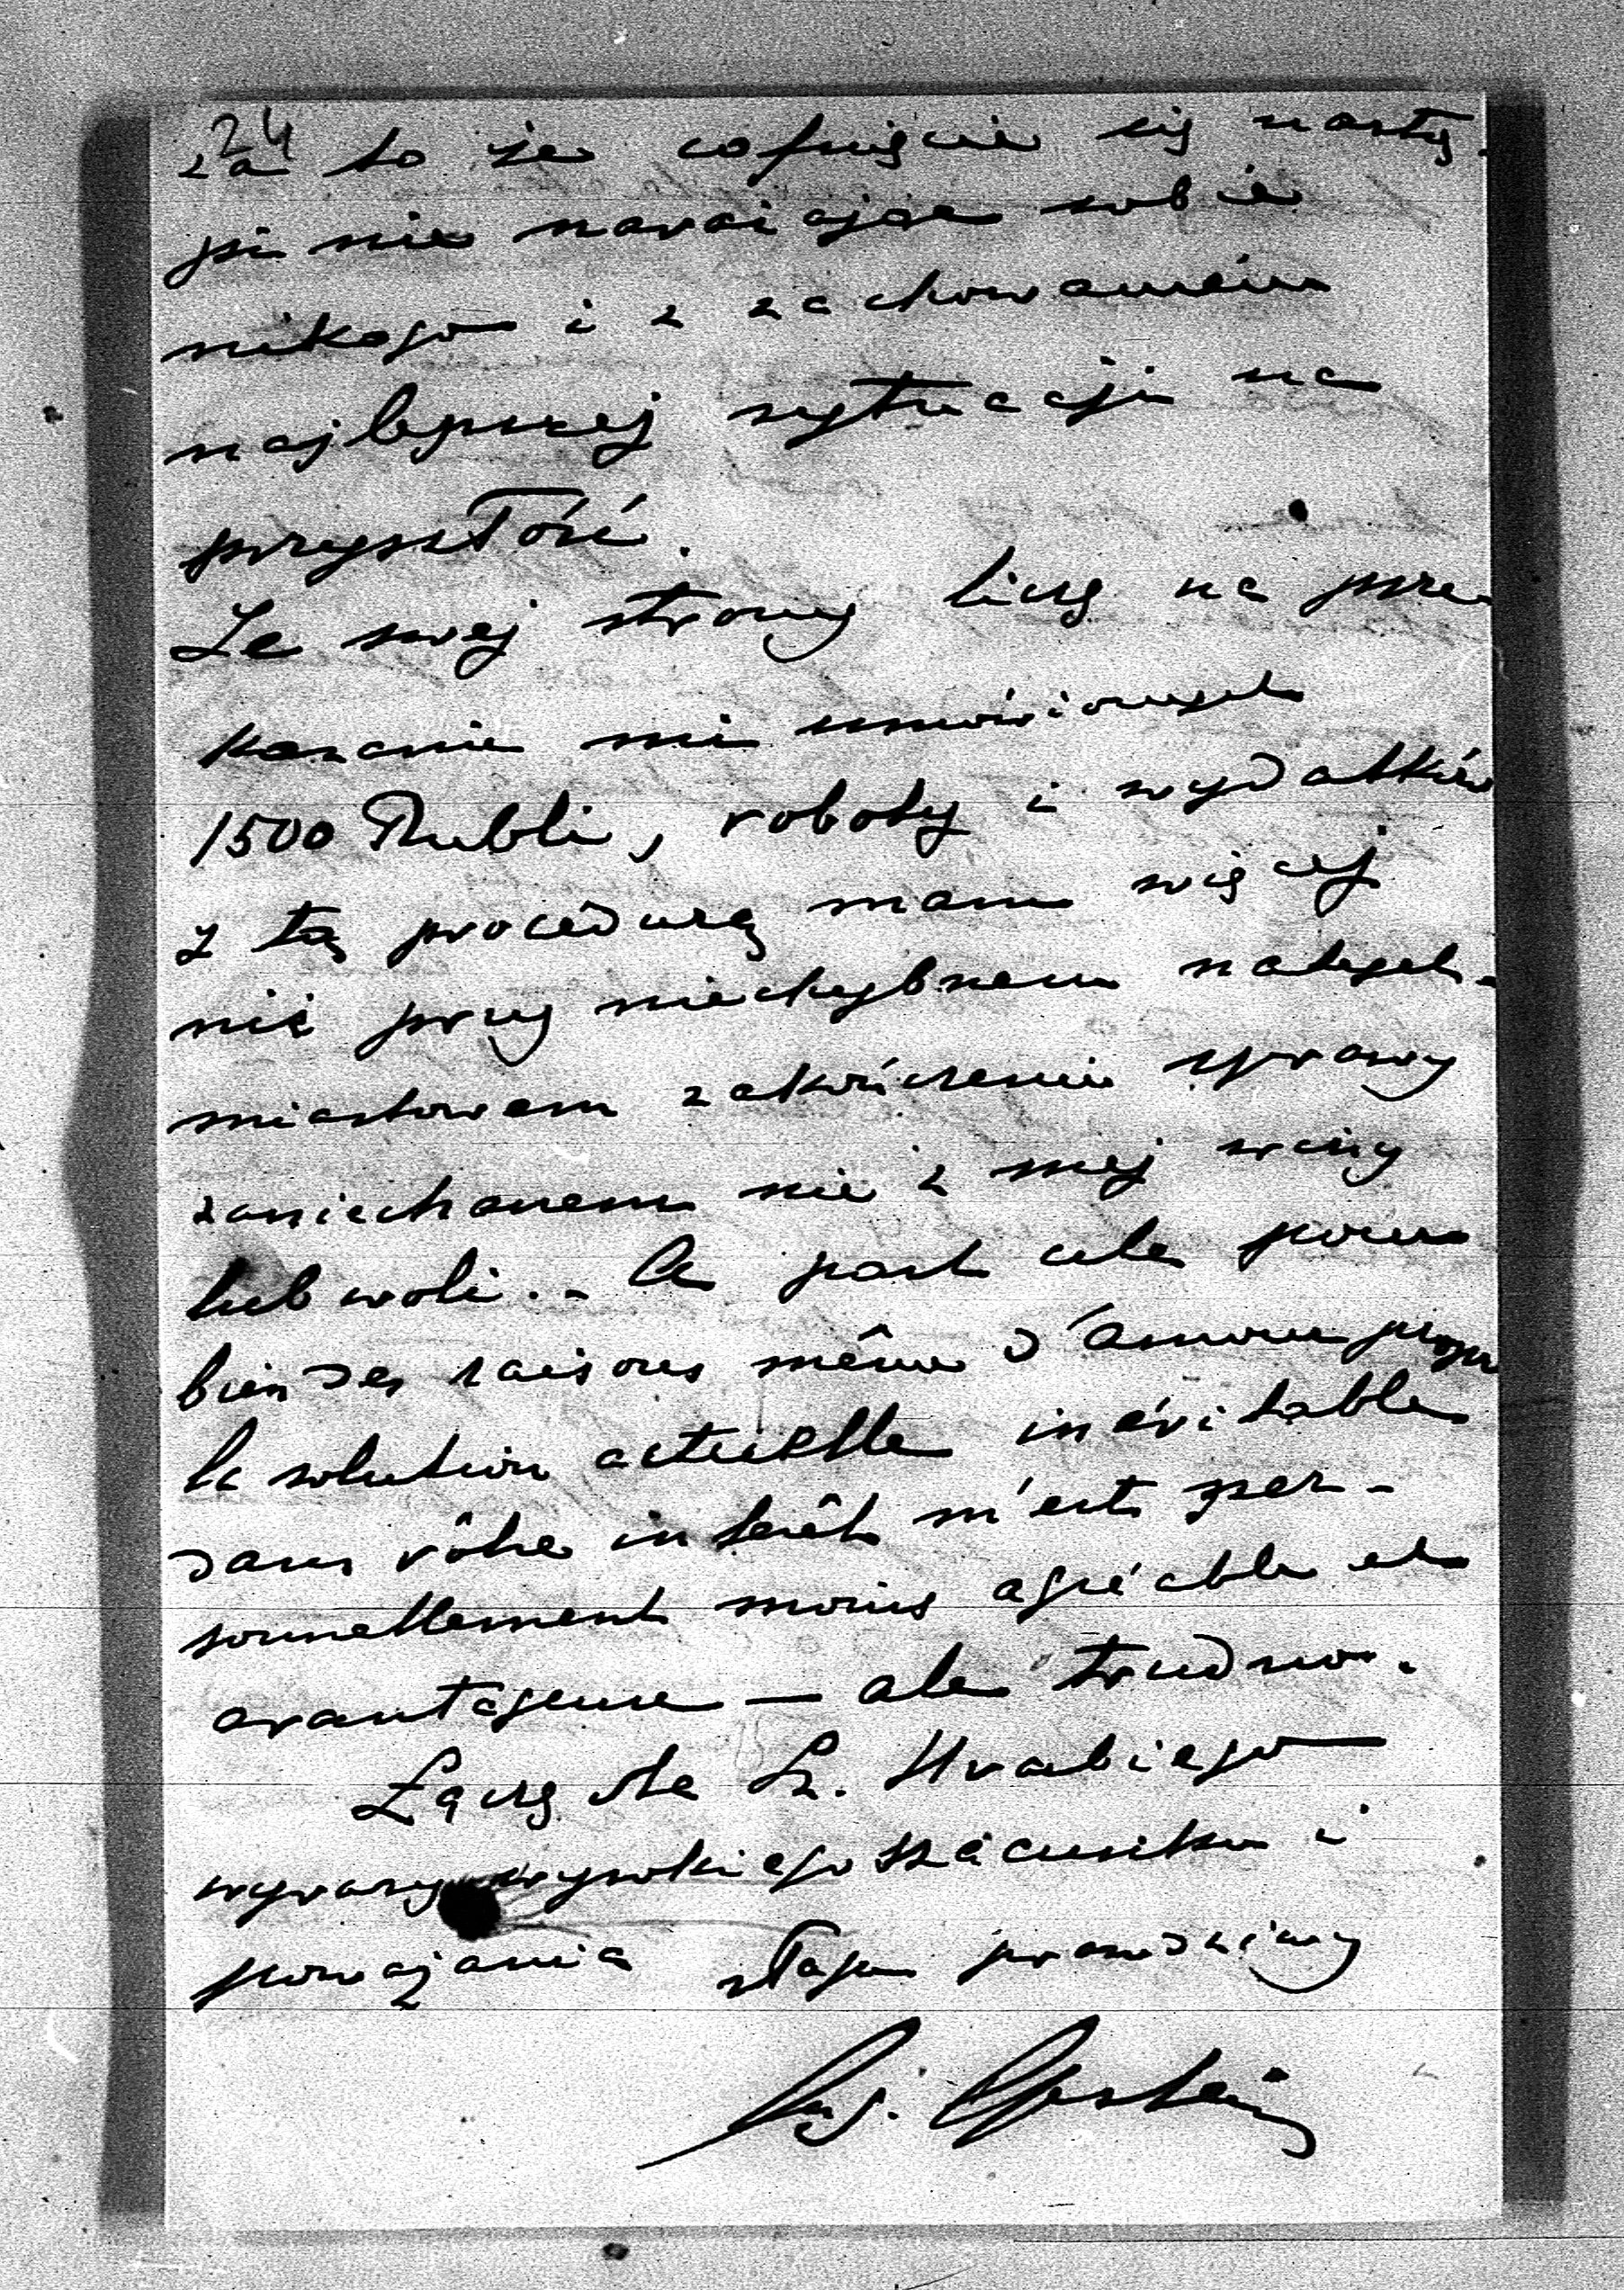 24
za to że cofnięcie się nastą-
pi nie narażając sobie
nikogo i z zachowaniem
najlepszej sytuacji na
przyszłość.
Ze swej strony liczę na prze
kazanie mi umówionych
1500 Rubli, roboty i wydatków
z tą procedurą mam więcej
niż przy niechybnem natych-
miastowem zakończeniu sprawy
zaniechanem nie z mej winy
lub woli. - A part cela pour
bien des raisons même d'amour propre
la solution actuelle inévitable
dans vôtre intérêt m'est per-
sonnellement moins agréable et
avantageuse — ale trudno.
Łączę dla Sz. Hrabiego
wyrazy wysokiego szacunku i
poważania sługa prawdziwy
Epstein